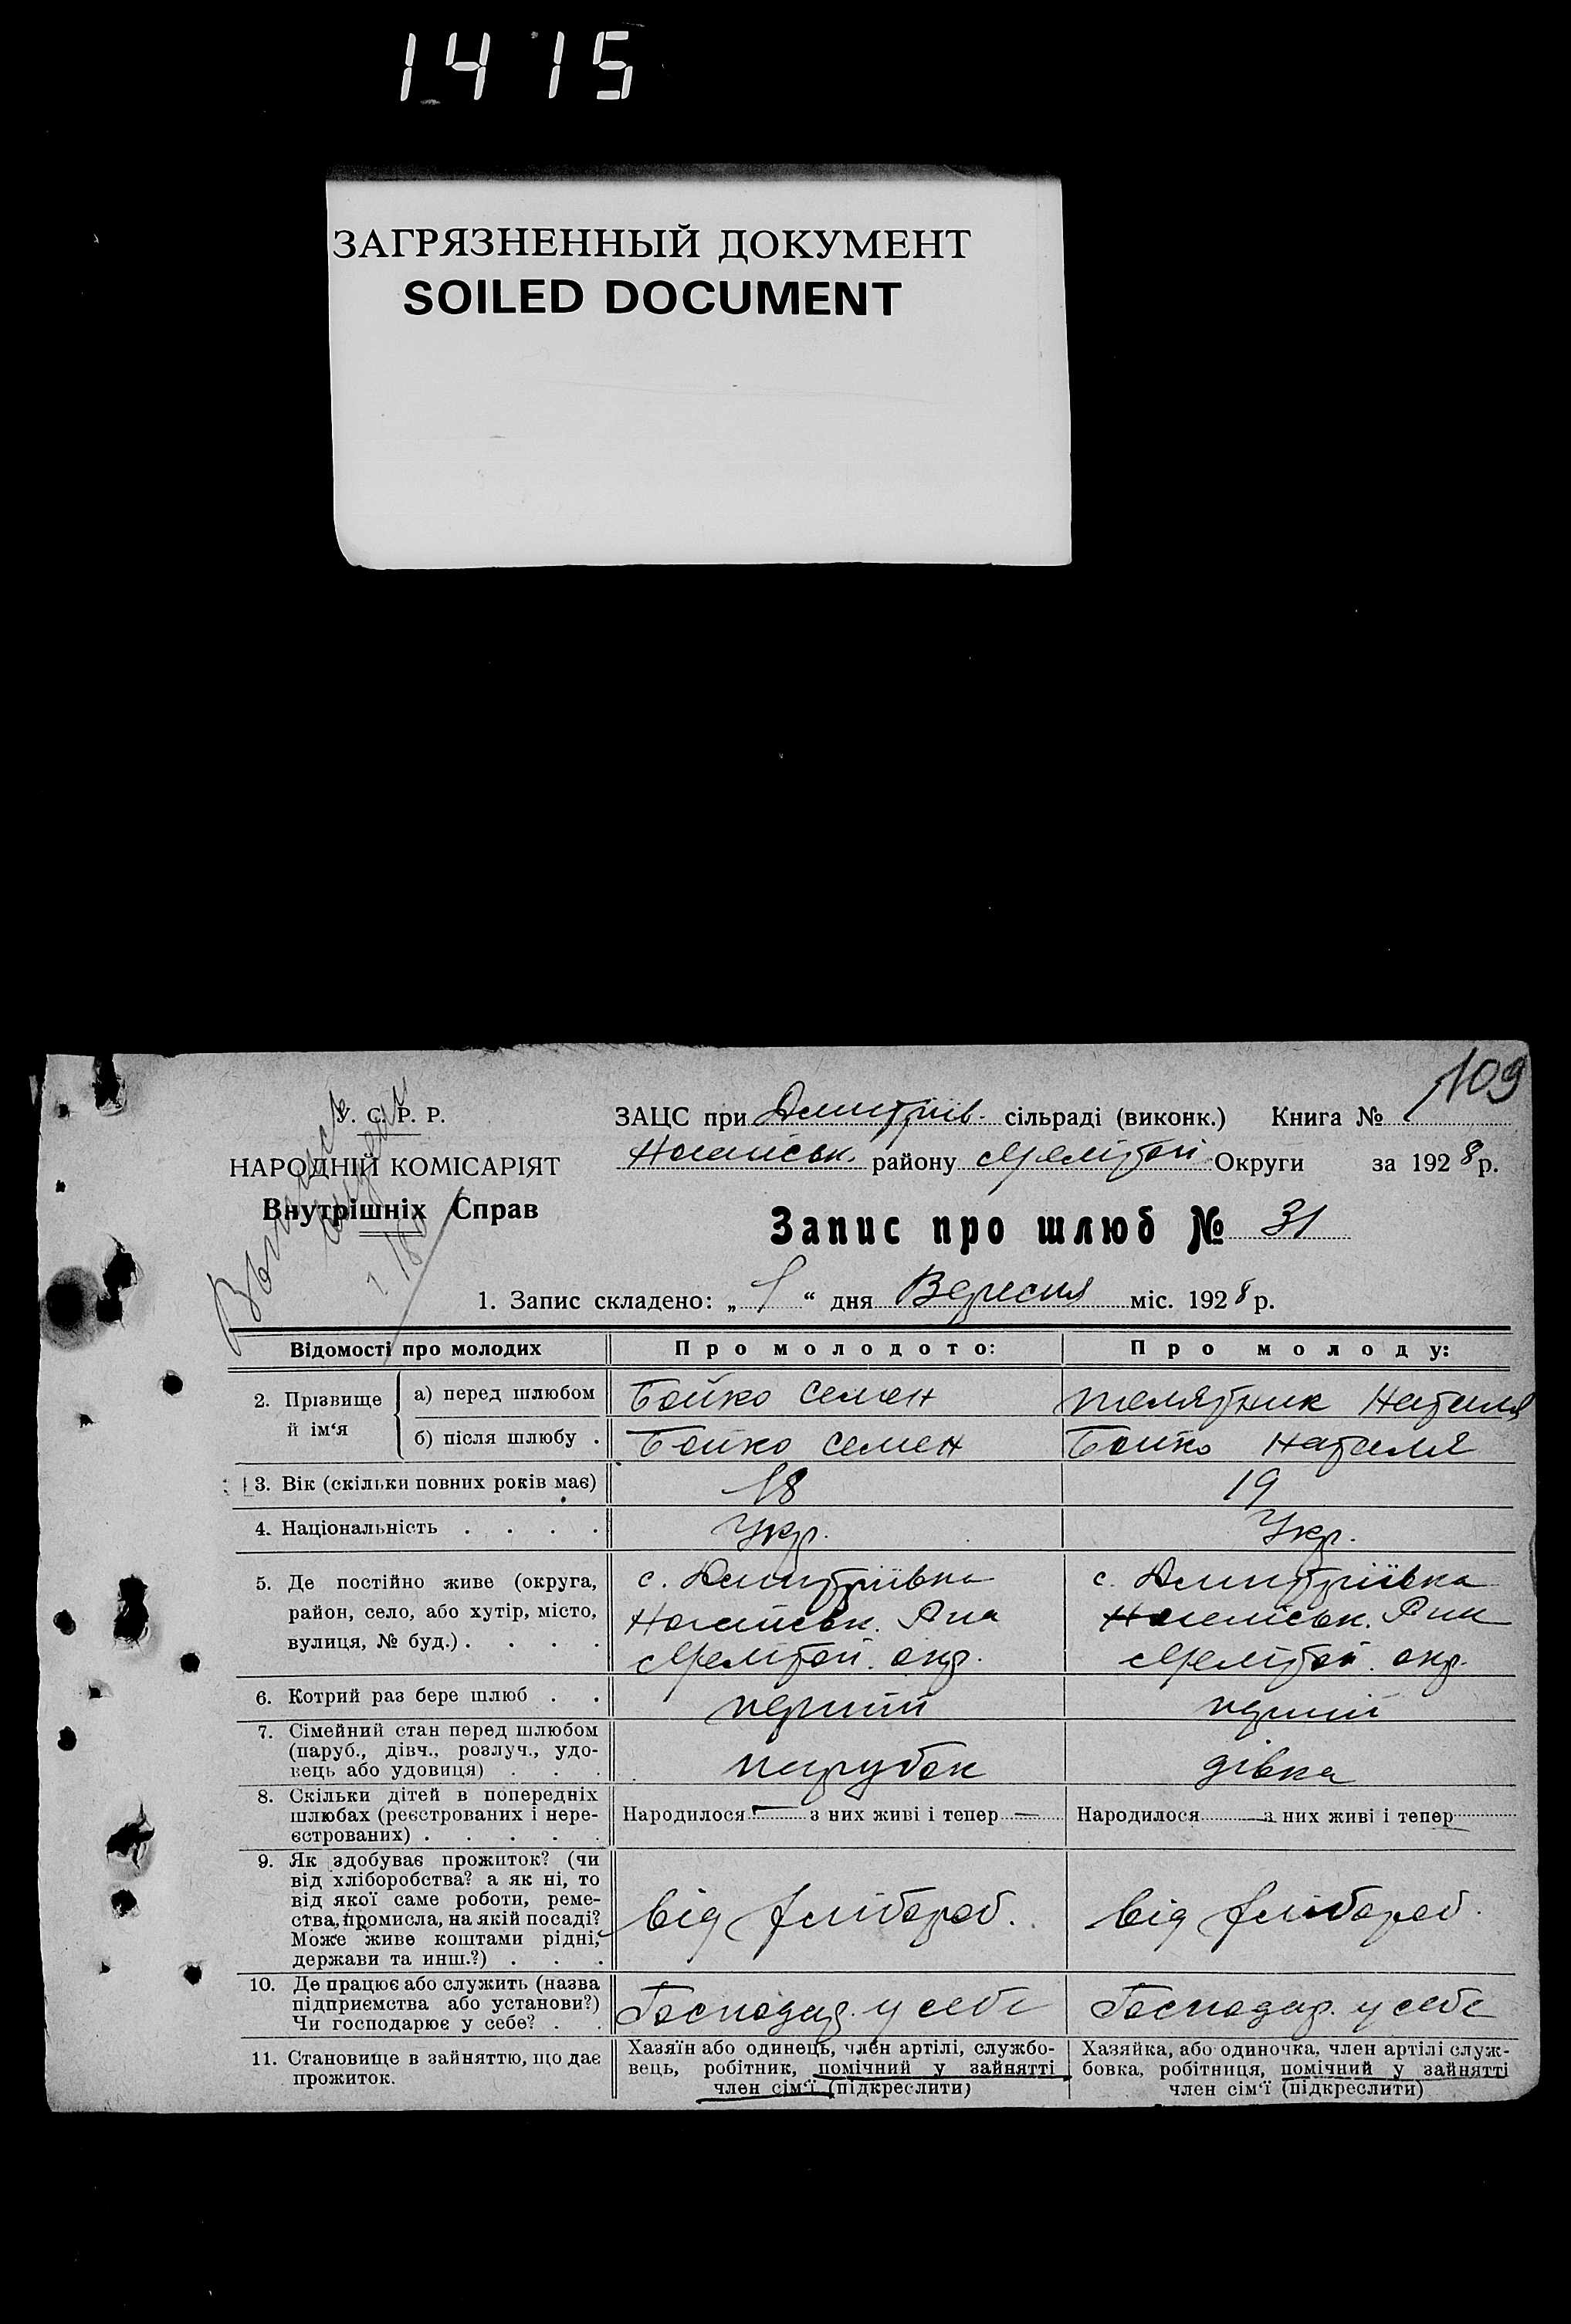 1415
ЗАГРЯЗНЕННЫЙ ДОКУМЕНТ
SOILED DOCUMENT
109
У. С. Р. Р.
НАРОДНІЙ КОМІСАРІЯТ
Внутрішніх Справ
ЗАЦС при Дмитрів. сільраді (виконк.) Книга №
Ногайськ. району Мелітоп. Округи за 1928 р.
Запис про шлюб № 31
1. Запис складено: „ 1 “ дня Вересня міс. 1928 р.
Відомості про молодих Про молодого: Про молоду:
2. Прізвище й ім‘я
а) перед шлюбом Бойко Семен Телятник Наталя
б) після шлюбу . Бойко Семен Бойко Наталя
3. Вік (скільки повних років має) 18 19
4. Національність . . . . Укр. Укр.
5. Де постійно живе (округа, с. Дмитріївка с. Дмитріївка
район, село, або хутір, місто, Ногайськ. Р-на Ногайськ. Р-на
вулиця, № буд.) . . . . Мелітоп. окр. Мелітоп. окр.
6. Котрий раз бере шлюб . . перший перший
7. Сімейний стан перед шлюбом
(паруб., дівч., розлуч., удо-
вець або удовиця) . . . парубок дівка
8. Скільки дітей в попередніх
шлюбах (реєстрованих і нере-
єстрованих) . . . . .
Народилося — з них живі і тепер — Народилося — з них живі і тепер —
9. Як здобуває прожиток? (чи
від хліборобства? а як ні, то
від якої саме роботи, реме-
ства, промисла, на якій посаді?
Може живе коштами рідні,
держави та инш.?) . . .
від хлібороб. від хлібороб.
10. Де працює або служить (назва
підприємства або установи?)
Чи господарює у себе? . .
Господар. у себе Господар. у себе
11. Становище в зайняттю, що дає
прожиток.
Хазяїн або одинець, член артілі, службо-
вець, робітник, помічний у зайнятті
член сім‘ї (підкреслити)
Хазяйка, або одиночка, член артілі служ-
бовка, робітниця, помічний у зайнятті
член сім‘ї (підкреслити)